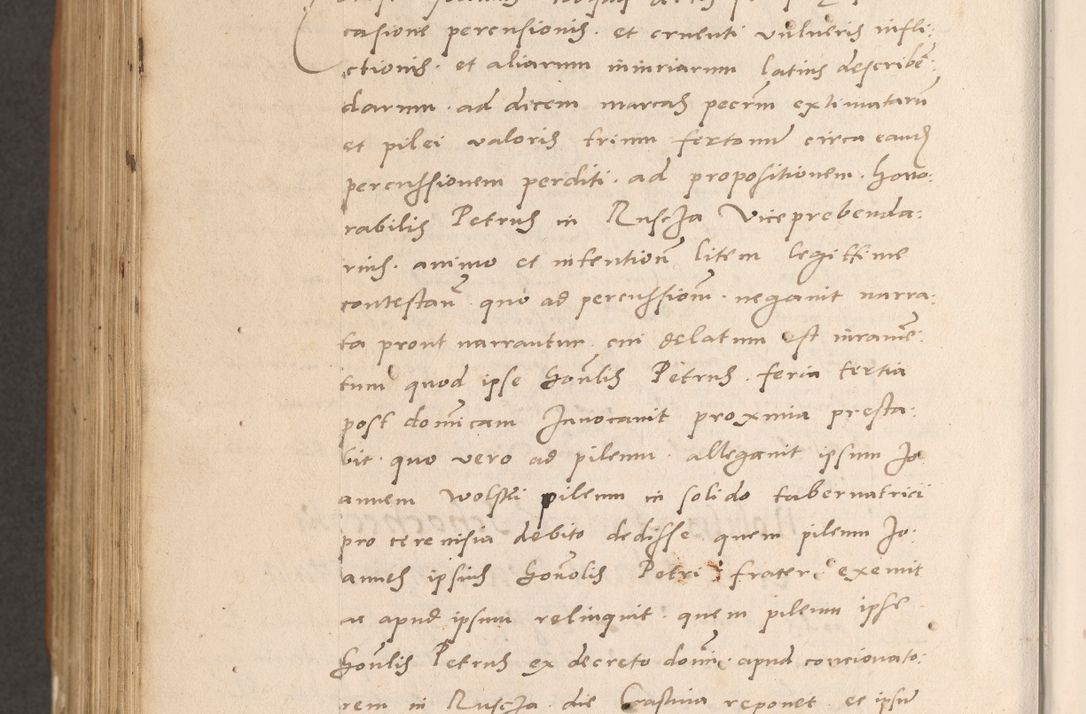 casione percusionis · et cruenti vulneris infli:
ctionis · et aliarum iniuriarum latius describē:
darum · ad dicem marcas pecūm extimatarū
et pilei valoris trium fertonū circa eand
percussionem perditi · ad propositionem · hono:
rabilis Petrus in Ruscza Viceprebenda:
rius · animo et intentionē litem legittime
contestanī quo ad percussionē · negauit narra:
ta prout narrantur cui delatum est iuramē:
tum quod ipse honōlis Petrus · feria tertia
post domīcam Inuocauit proxima presta:
bit · quo vero ad pileum · allegauit ipsum Jo
annem Wolski pileum in solido tabernatrici
pro cereuisia debito dedisse quem pileum Jo:
annes ipsius honōlis Petri frater exemit
ac apud ipsum relinquit · quem pileum ipse
honōlis Petrus ex decreto domī · apud concionato:
rem in Ruscza die Crastina reponet et ipsū